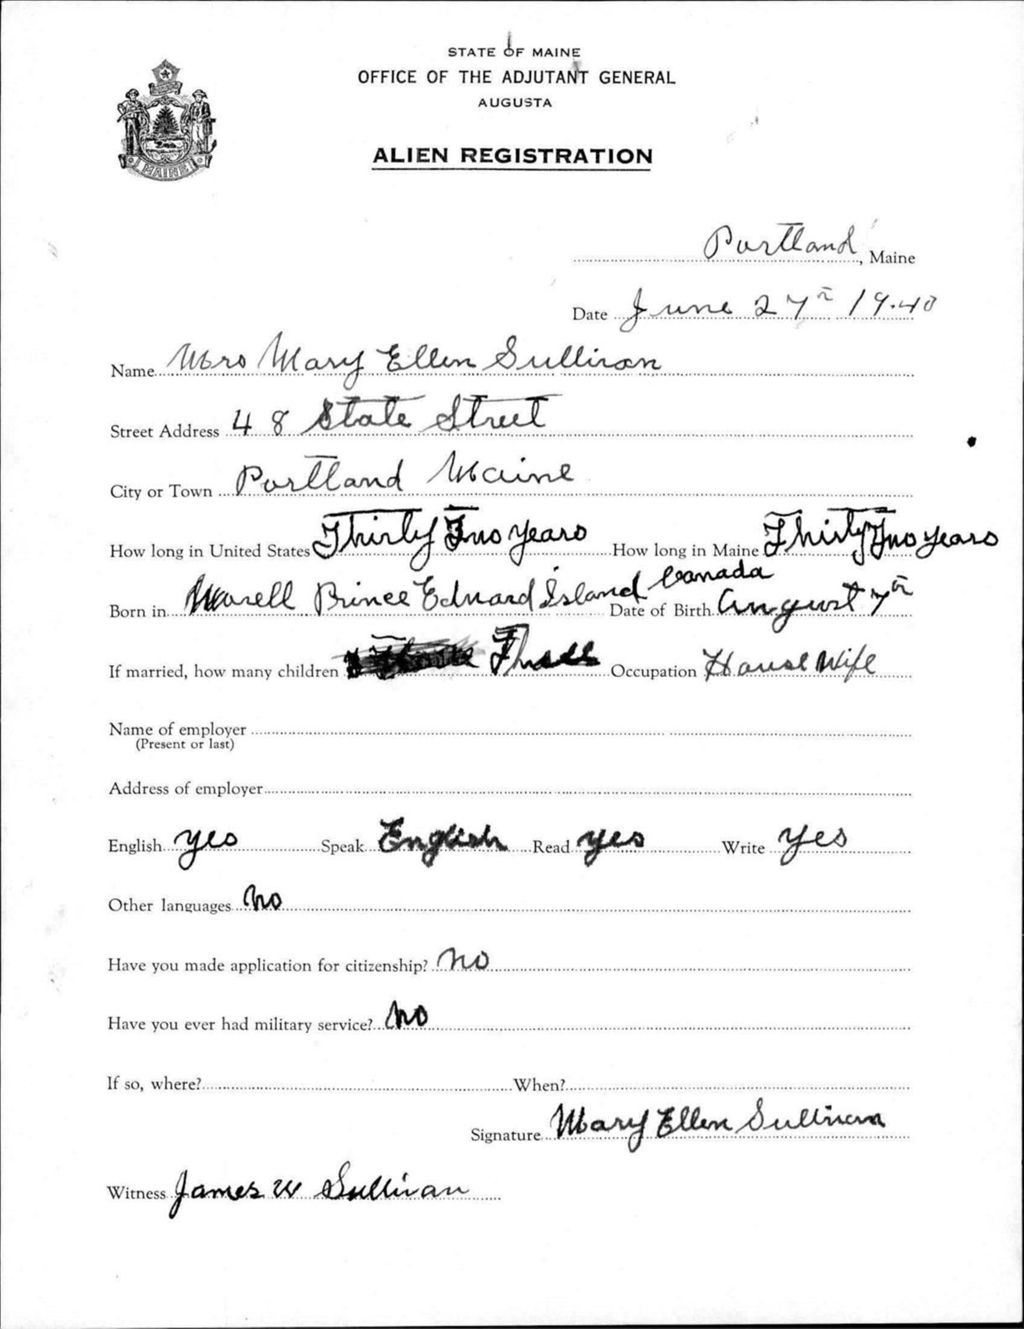 STATE OF MAINE
OFFICE OF THE ADJUTANT GENERAL
AUGUSTA
ALIEN REGISTRATION
MAINE
Portland, Maine
Date June 27th 1940
Name Mrs Mary Ellen Sullivan
Street Address 48 State Street
City or Town Portland Maine
How long in United States Thirty Two years How long in Maine Thirty Two years
Born in Morell Prince Edward Island Canada Date of Birth August 7th
If married, how many children Three Occupation House Wife
Name of employer
(Present or last)
Address of employer
English yes Speak English Read yes Write yes
Other languages no
Have you made application for citizenship? no
Have you ever had military service? no
If so, where? When?
Signature Mary Ellen Sullivan
Witness James W Sullivan